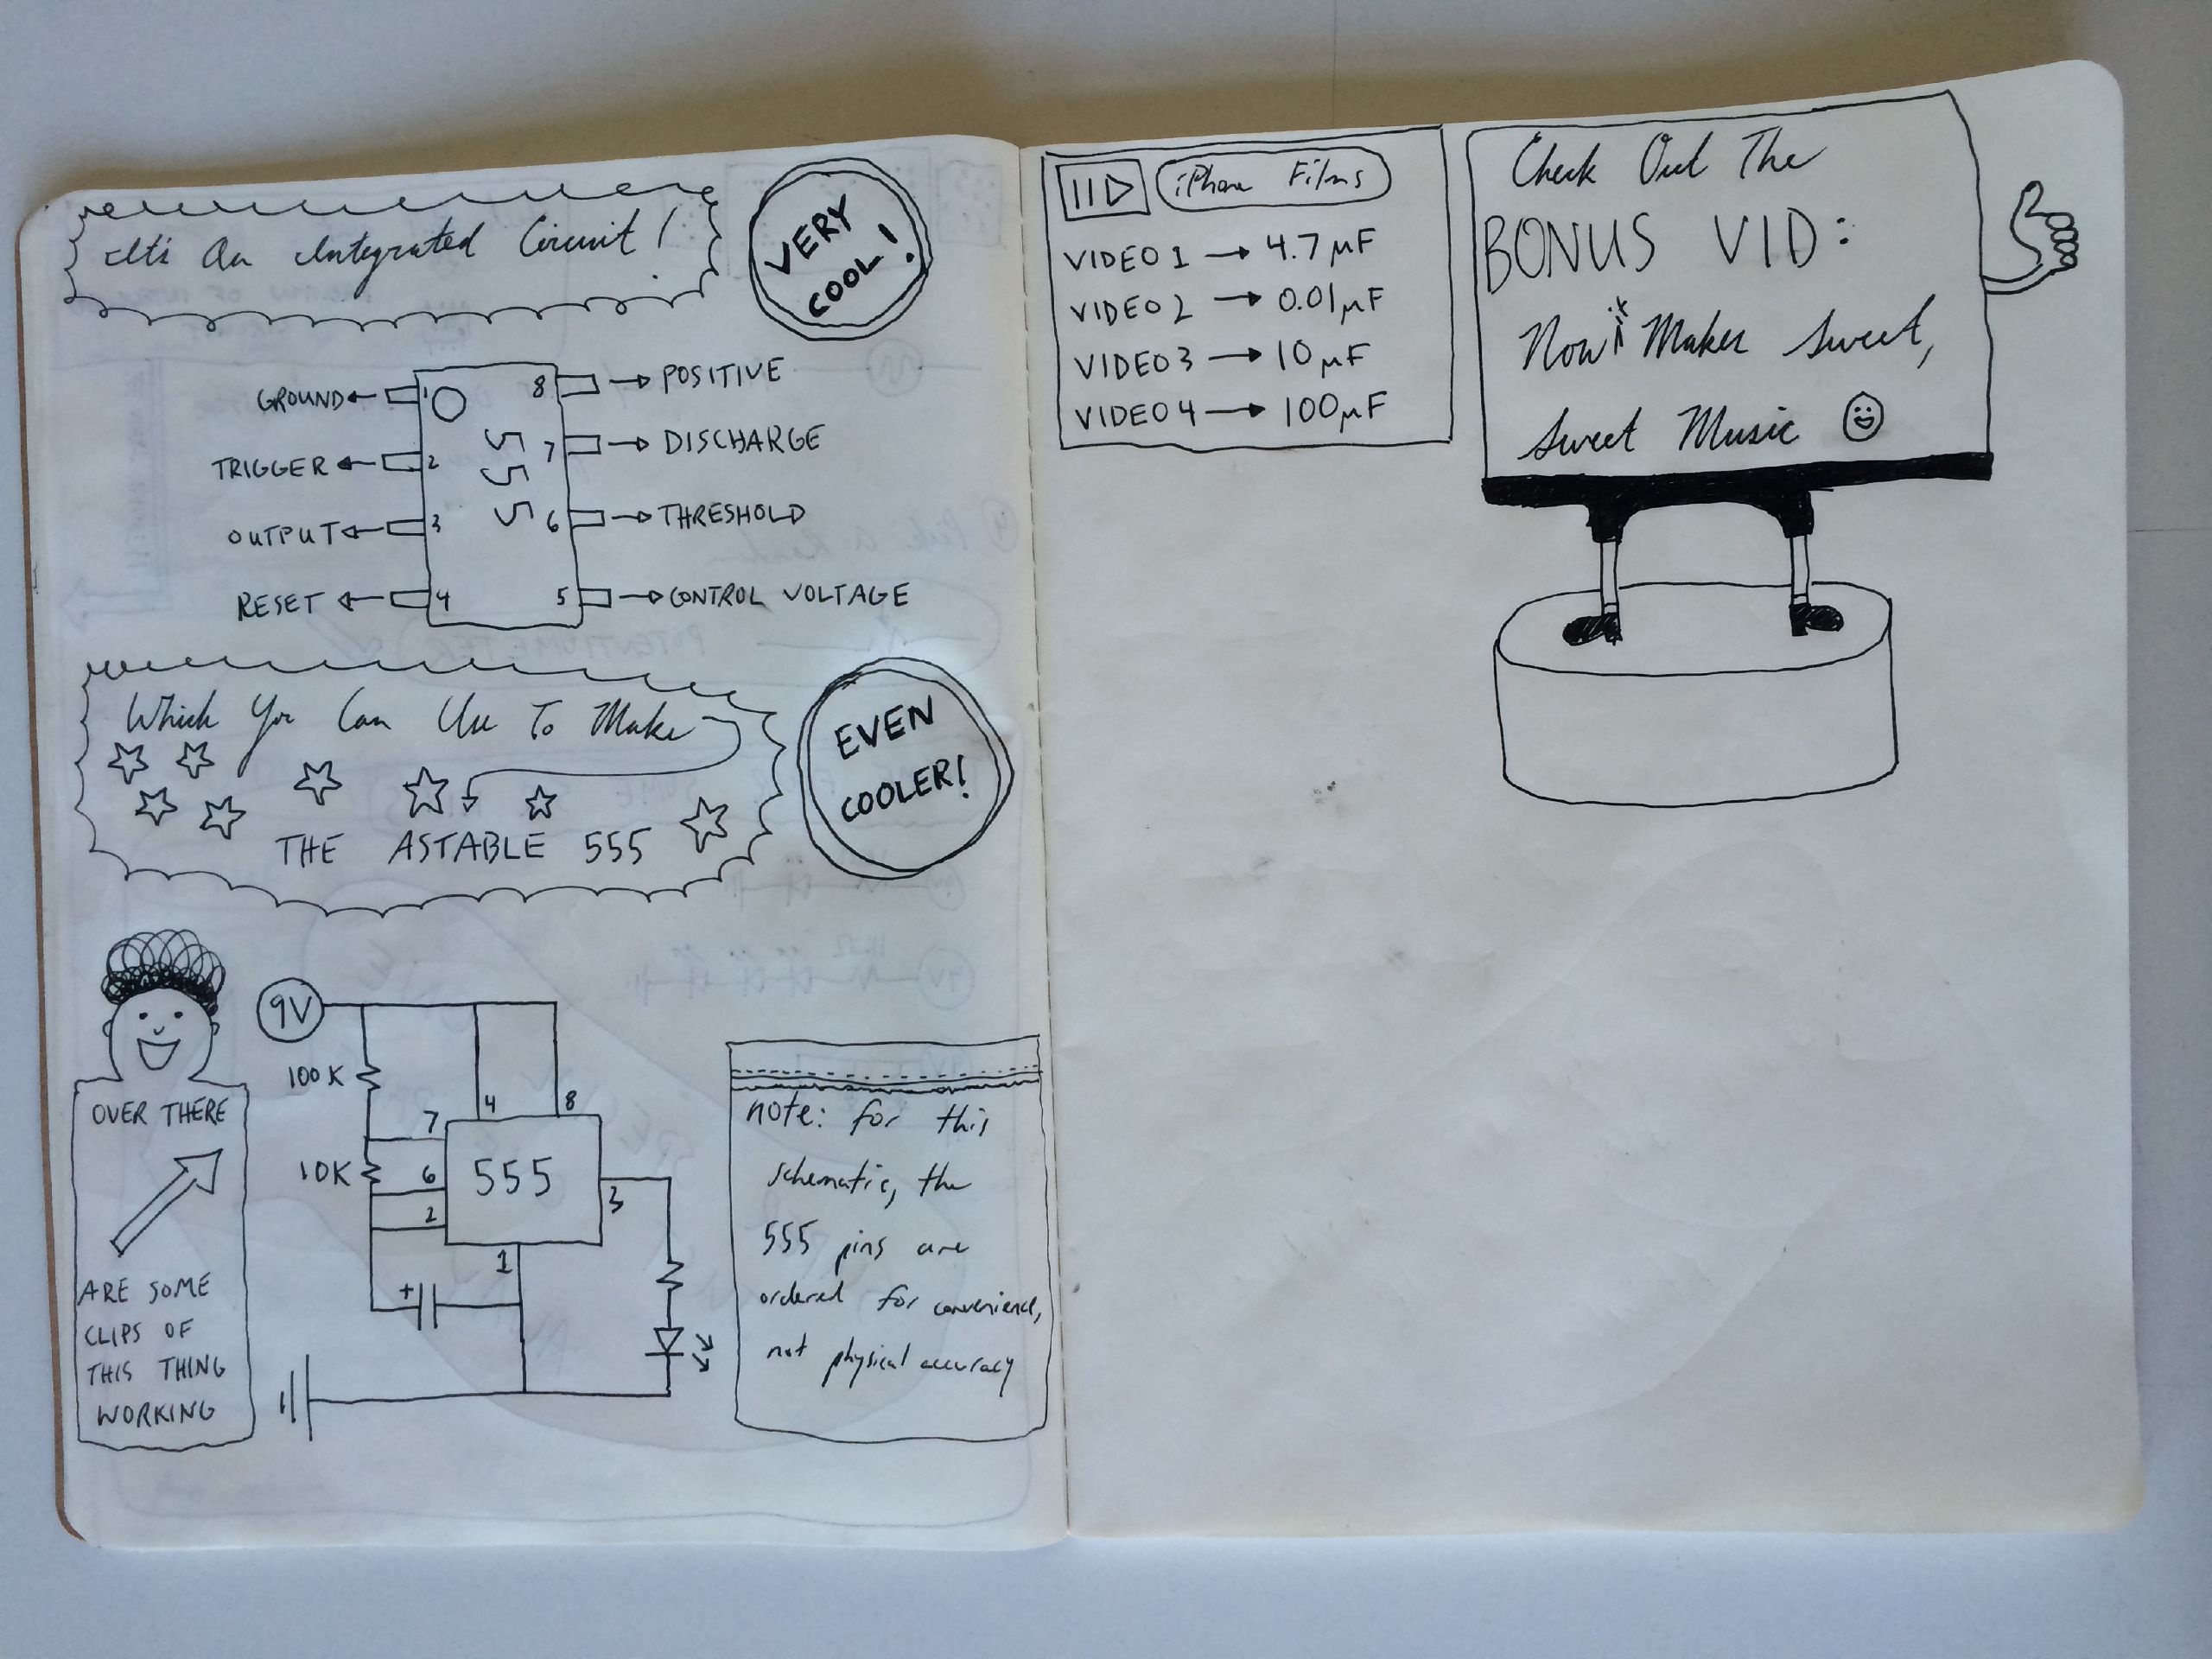 It's An Integrated Circuit!
VERY
COOL!
GROUND
1
8
POSITIVE
TRIGGER
2
7
DISCHARGE
OUTPUT
3
6
THRESHOLD
RESET
4
5
CONTROL VOLTAGE
555
Which You Can Use To Make
THE ASTABLE 555
EVEN
COOLER!
OVER THERE
ARE SOME
CLIPS OF
THIS THING
WORKING
9V
100K
4
8
7
10K
6
555
2
3
1
+
note: for this
schematic, the
555 pins are
ordered for convenience,
not physical accuracy
iPhone Films
VIDEO 1 → 4.7 μF
VIDEO 2 → 0.01μF
VIDEO 3 → 10 μF
VIDEO 4 → 100μF
Check Out The
BONUS VID:
Now Makes Sweet,
Sweet Music